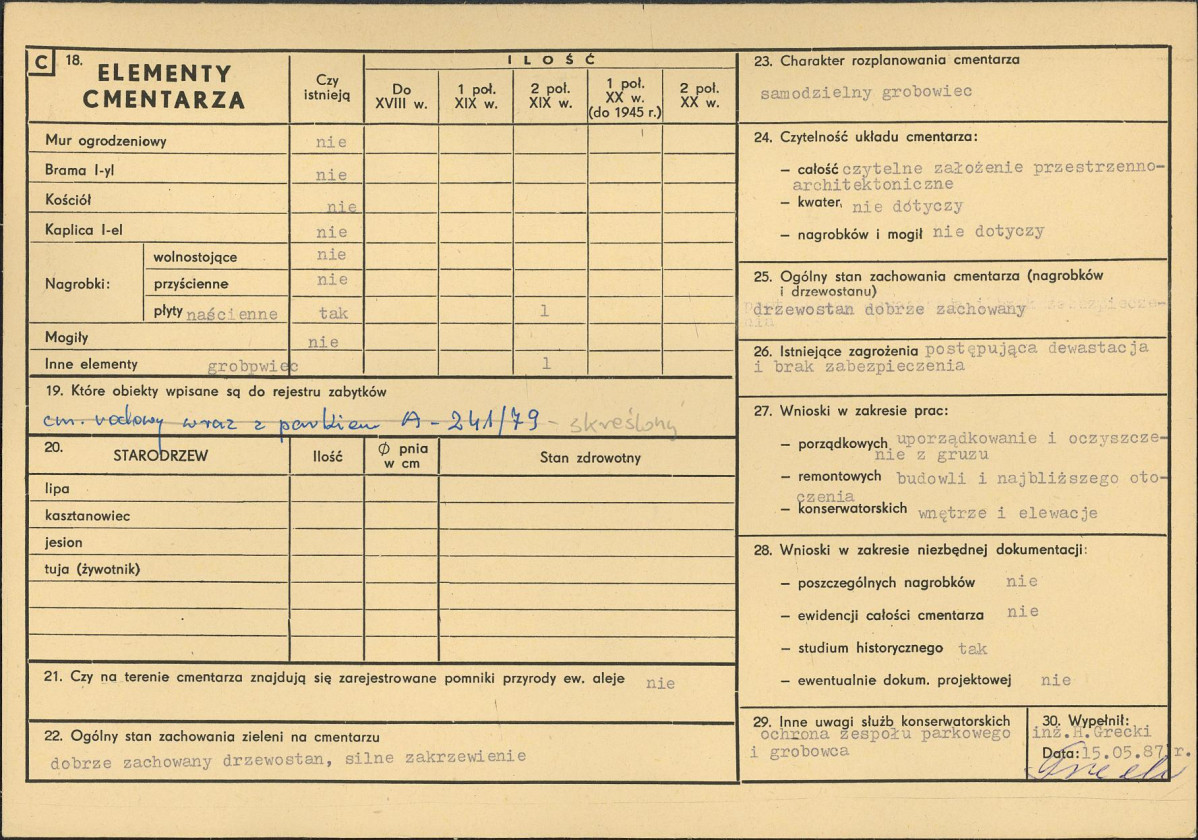 C 18. ELEMENTY
CMENTARZA
Czy
istnieją
ILOŚĆ
Do
XVIII w.
1 poł.
XIX w.
2 poł.
XIX w.
1 poł.
XX w.
(do 1945 r.)
2 poł.
XX w.
Mur ogrodzeniowy nie
Brama I-yl nie
Kościół nie
Kaplica I-el nie
Nagrobki:
wolnostojące nie
przyścienne nie
płyty naścienne tak 1
Mogiły nie
Inne elementy grobpwiec 1
19. Które obiekty wpisane są do rejestru zabytków
cm. rodowy wraz z parkiem A-241/79 - skreślony
20. STARODRZEW Ilość Ø pnia
w cm
Stan zdrowotny
lipa
kasztanowiec
jesion
tuja (żywotnik)
21. Czy na terenie cmentarza znajdują się zarejestrowane pomniki przyrody ew. aleje nie
22. Ogólny stan zachowania zieleni na cmentarzu
dobrze zachowany drzewostan, silne zakrzewienie
23. Charakter rozplanowania cmentarza
samodzielny grobowiec
24. Czytelność układu cmentarza:
— całość czytelne założenie przestrzenno-
architektoniczne
— kwater, nie dotyczy
— nagrobków i mogił nie dotyczy
25. Ogólny stan zachowania cmentarza (nagrobków
i drzewostanu)
drzewostan dobrze zachowany
26. Istniejące zagrożenia postępująca dewastacja
i brak zabezpieczenia
27. Wnioski w zakresie prac:
— porządkowych uporządkowanie i oczyszcze-
nie z gruzu
— remontowych budowli i najbliższego oto-
czenia
— konserwatorskich wnętrze i elewacje
28. Wnioski w zakresie niezbędnej dokumentacji:
— poszczególnych nagrobków nie
— ewidencji całości cmentarza nie
— studium historycznego tak
— ewentualnie dokum. projektowej nie
29. Inne uwagi służb konserwatorskich
ochrona zespołu parkowego
i grobowca
30. Wypełnił:
inż.H.Grecki
Data: 15.05.87 r.